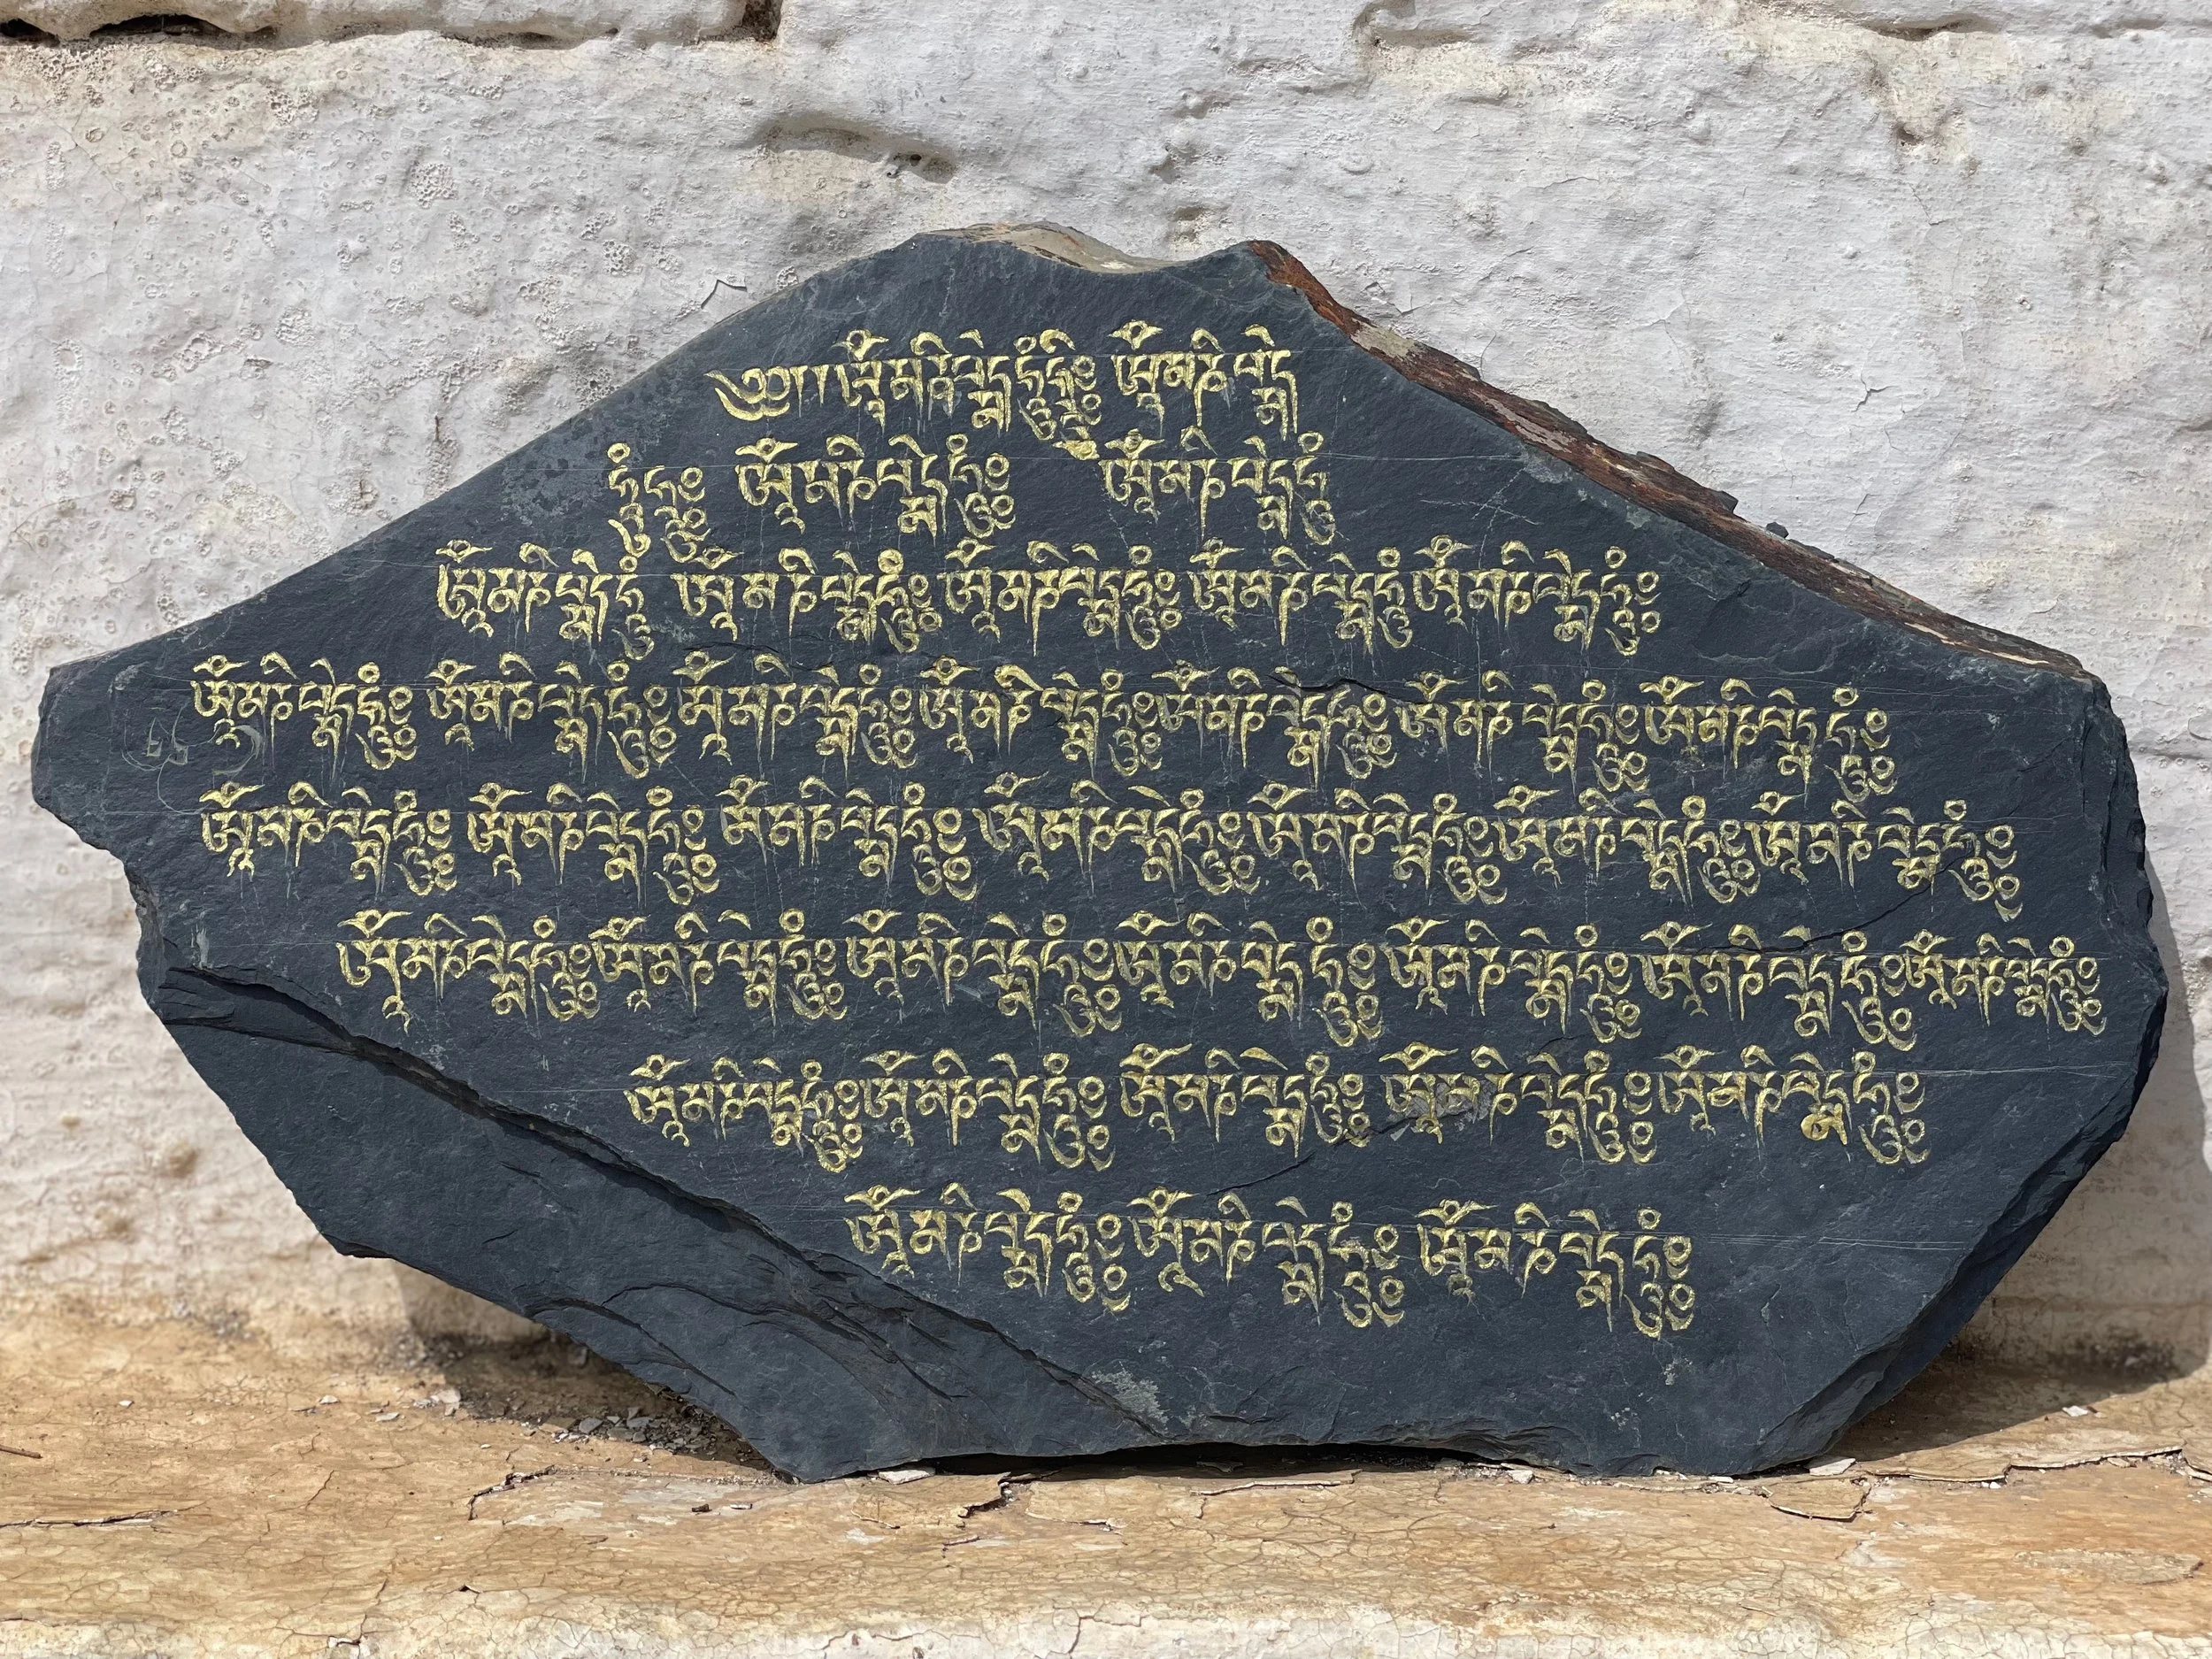 ༄༅། །ཨོཾ་མ་ཎི་པདྨེ་ཧཱུྃ་ཧྲཱིཿ ཨོཾ་མ་ཎི་པདྨེ
ཧཱུྃ ཨོཾ་མ་ཎི་པདྨེ་ཧཱུྃཿ ཨོཾ་མ་ཎི་པདྨེ་ཧཱུྃ
ཨོཾ་མ་ཎི་པདྨེ་ཧཱུྃ ཨོཾ་མ་ཎི་པདྨེ་ཧཱུྃཿ ཨོཾ་མ་ཎི་པདྨེ་ཧཱུྃཿ ཨོཾ་མ་ཎི་པདྨེ་ཧཱུྃ ཨོཾ་མ་ཎི་པདྨེ་ཧཱུྃཿ
ཨོཾ་མ་ཎི་པདྨེ་ཧཱུྃཿ ཨོཾ་མ་ཎི་པདྨེ་ཧཱུྃཿ ཨོཾ་མ་ཎི་པདྨེ་ཧཱུྃཿ ཨོཾ་མ་ཎི་པདྨེ་ཧཱུྃཿ ཨོཾ་མ་ཎི་པདྨེ་ཧཱུྃཿ ཨོཾ་མ་ཎི་པདྨེ་ཧཱུྃཿ ཨོཾ་མ་ཎི་པདྨེ་ཧཱུྃཿ
ཨོཾ་མ་ཎི་པདྨེ་ཧཱུྃཿ ཨོཾ་མ་ཎི་པདྨེ་ཧཱུྃཿ ཨོཾ་མ་ཎི་པདྨེ་ཧཱུྃཿ ཨོཾ་མ་ཎི་པདྨེ་ཧཱུྃཿ ཨོཾ་མ་ཎི་པདྨེ་ཧཱུྃཿ ཨོཾ་མ་ཎི་པདྨེ་ཧཱུྃཿ ཨོཾ་མ་ཎི་པདྨེ་ཧཱུྃཿ
ཨོཾ་མ་ཎི་པདྨེ་ཧཱུྃཿ ཨོཾ་མ་ཎི་པདྨེ་ཧཱུྃཿ ཨོཾ་མ་ཎི་པདྨེ་ཧཱུྃཿ ཨོཾ་མ་ཎི་པདྨེ་ཧཱུྃཿ ཨོཾ་མ་ཎི་པདྨེ་ཧཱུྃཿ ཨོཾ་མ་ཎི་པདྨེ་ཧཱུྃཿ ཨོཾ་མ་ཎི་པདྨེ་ཧཱུྃཿ
ཨོཾ་མ་ཎི་པདྨེ་ཧཱུྃཿ ཨོཾ་མ་ཎི་པདྨེ་ཧཱུྃཿ ཨོཾ་མ་ཎི་པདྨེ་ཧཱུྃཿ ཨོཾ་མ་ཎི་པདྨེ་ཧཱུྃཿ ཨོཾ་མ་ཎི་པདྨེ་ཧཱུྃཿ
ཨོཾ་མ་ཎི་པདྨེ་ཧཱུྃཿ ཨོཾ་མ་ཎི་པདྨེ་ཧཱུྃཿ ཨོཾ་མ་ཎི་པདྨེ་ཧཱུྃཿ